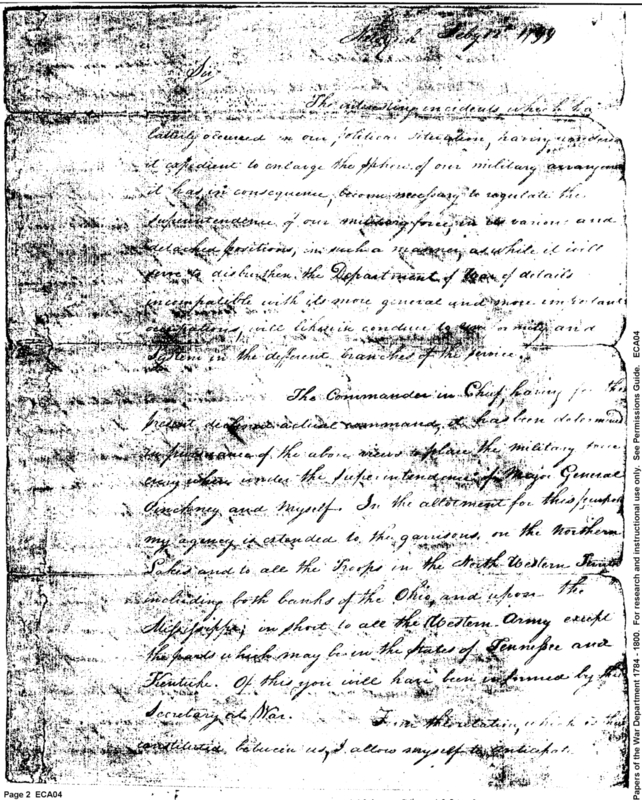 Feby 12th 1799
Sir
The interesting incidents which ha
latterly occurred in our political situation, having rendere
it expedient to enlarge the sphere of our military arrangem
it has, in consequence, become necessary to regulate the
superintendence of our military force, in its various and
detached positions, in such a manner, as while it will
serve to disburthen the Department of War of details
incompatible with its more general and more important
occupations, will likewise conduce to uniformity and
System in the different branches of the service.
The Commander in Chief, having for the
present declined actual command, it has been determined
in pursuance of the above views to place the military force
every where under the superintendence of Major General
Pinckney and myself. In the allotment for this purpose
my agency is extended to the garrisons on the Northern
Lakes and to all the Troops in the North Western
including both banks of the Ohio, and upon the
Mississippi; in short to all the Western Army except
the parts which may be in the States of Tennessee and
Kentuke. Of this you will have been informed by the
Secretary at War.
In the relation, which is thus
constituted between us, I allow myself to anticipate
Page 2 ECA04
Papers of the War Department 1784 - 1800. For research and instructional use only. See Permissions Guide. ECA04